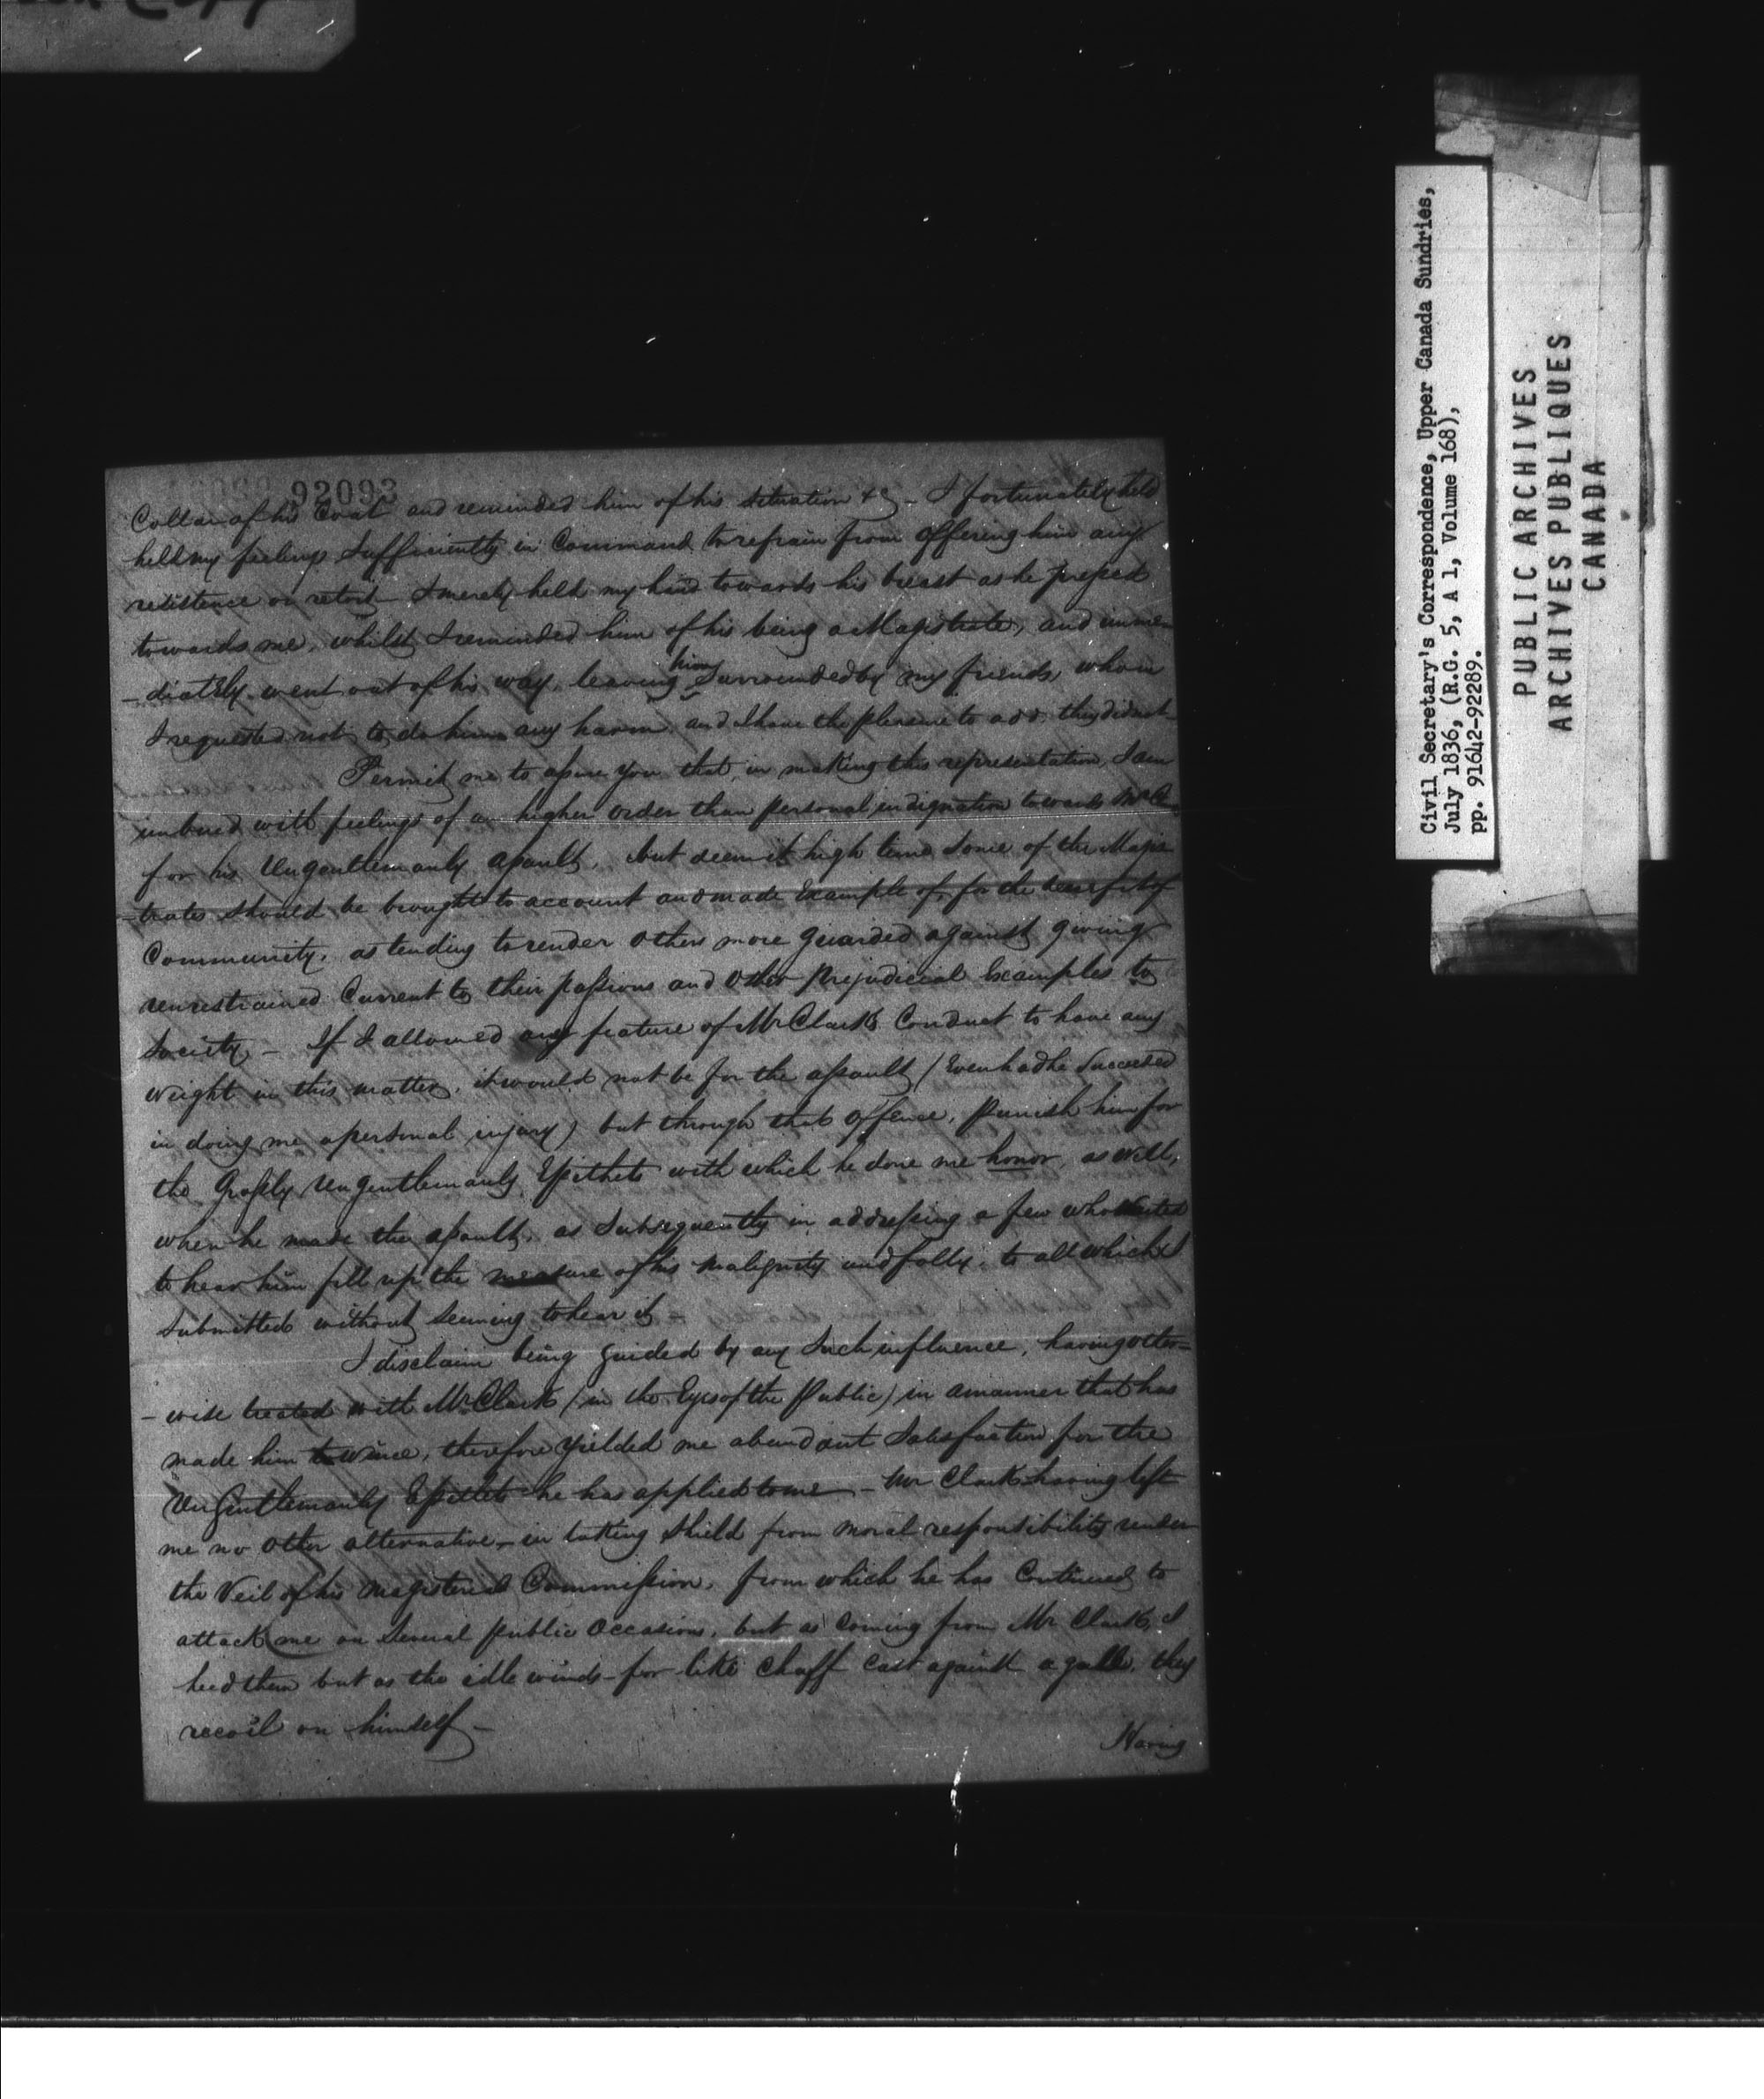 92093
Collar of his Coat and reminded him of his situation &c - I fortunately held
held my feelings sufficiently in Command to refrain from offering him any
resistence or retort - I merely held my hand towards his breast as he pressed
towards me, whilst I reminded him of his being a Magistrate, and imme
-diately went out of his way, leaving him surrounded by my friends, whom
I requested not to do him any harm, and I have the pleasure to add they did not
Permit me to assure you that, in making this representation, I am
imbued with feelings of an higher order than personal indignation towards Mr C
for his Ungentlemanly assault, but deem it high time some of the Magis
-trates should be brought to account and made Example of, for the benefit of
Community, as tending to render others more guarded against giving
unrestrained Current to their passions and other prejudicial Examples to
Society - If I allowed any feature of Mr Clark's Conduct to have any
weight in this matter, it would not be for the assault (Even had he Succeeded
in doing me a personal injury) but through that offence, punish him for
the Grossly Ungentlemanly Epithets with which he done me honor, as well,
when he made the assault, as Subsequently in addressing a few who waited
to hear him fill up the measure of his malignity and folly, to all which I
submitted without seeming to hear it
I disclaim being guided by any Such influence, having other-
-wise treated with Mr Clark (in the Eyes of the Public) in a manner that has
made him to wince, therefore yielded me abundant Satisfaction for the
Ungentlemanly Epithets he has applied to me - Mr Clark having left
me no other alternative, in taking Shield from moral responsibility under
the Veil of his Magisterial Commission, from which he has Continued to
attack me on Several public Occasions, but as Coming from Mr Clark, I
heed them but as the idle winds - for like Chaff Cast against a gale, they
recoil on himself -
Having
Civil Secretary's Correspondence, Upper Canada Sundries,
July 1836, (R.G. 5, A 1, Volume 168),
pp. 91642-92289.
PUBLIC ARCHIVES
ARCHIVES PUBLIQUES
CANADA